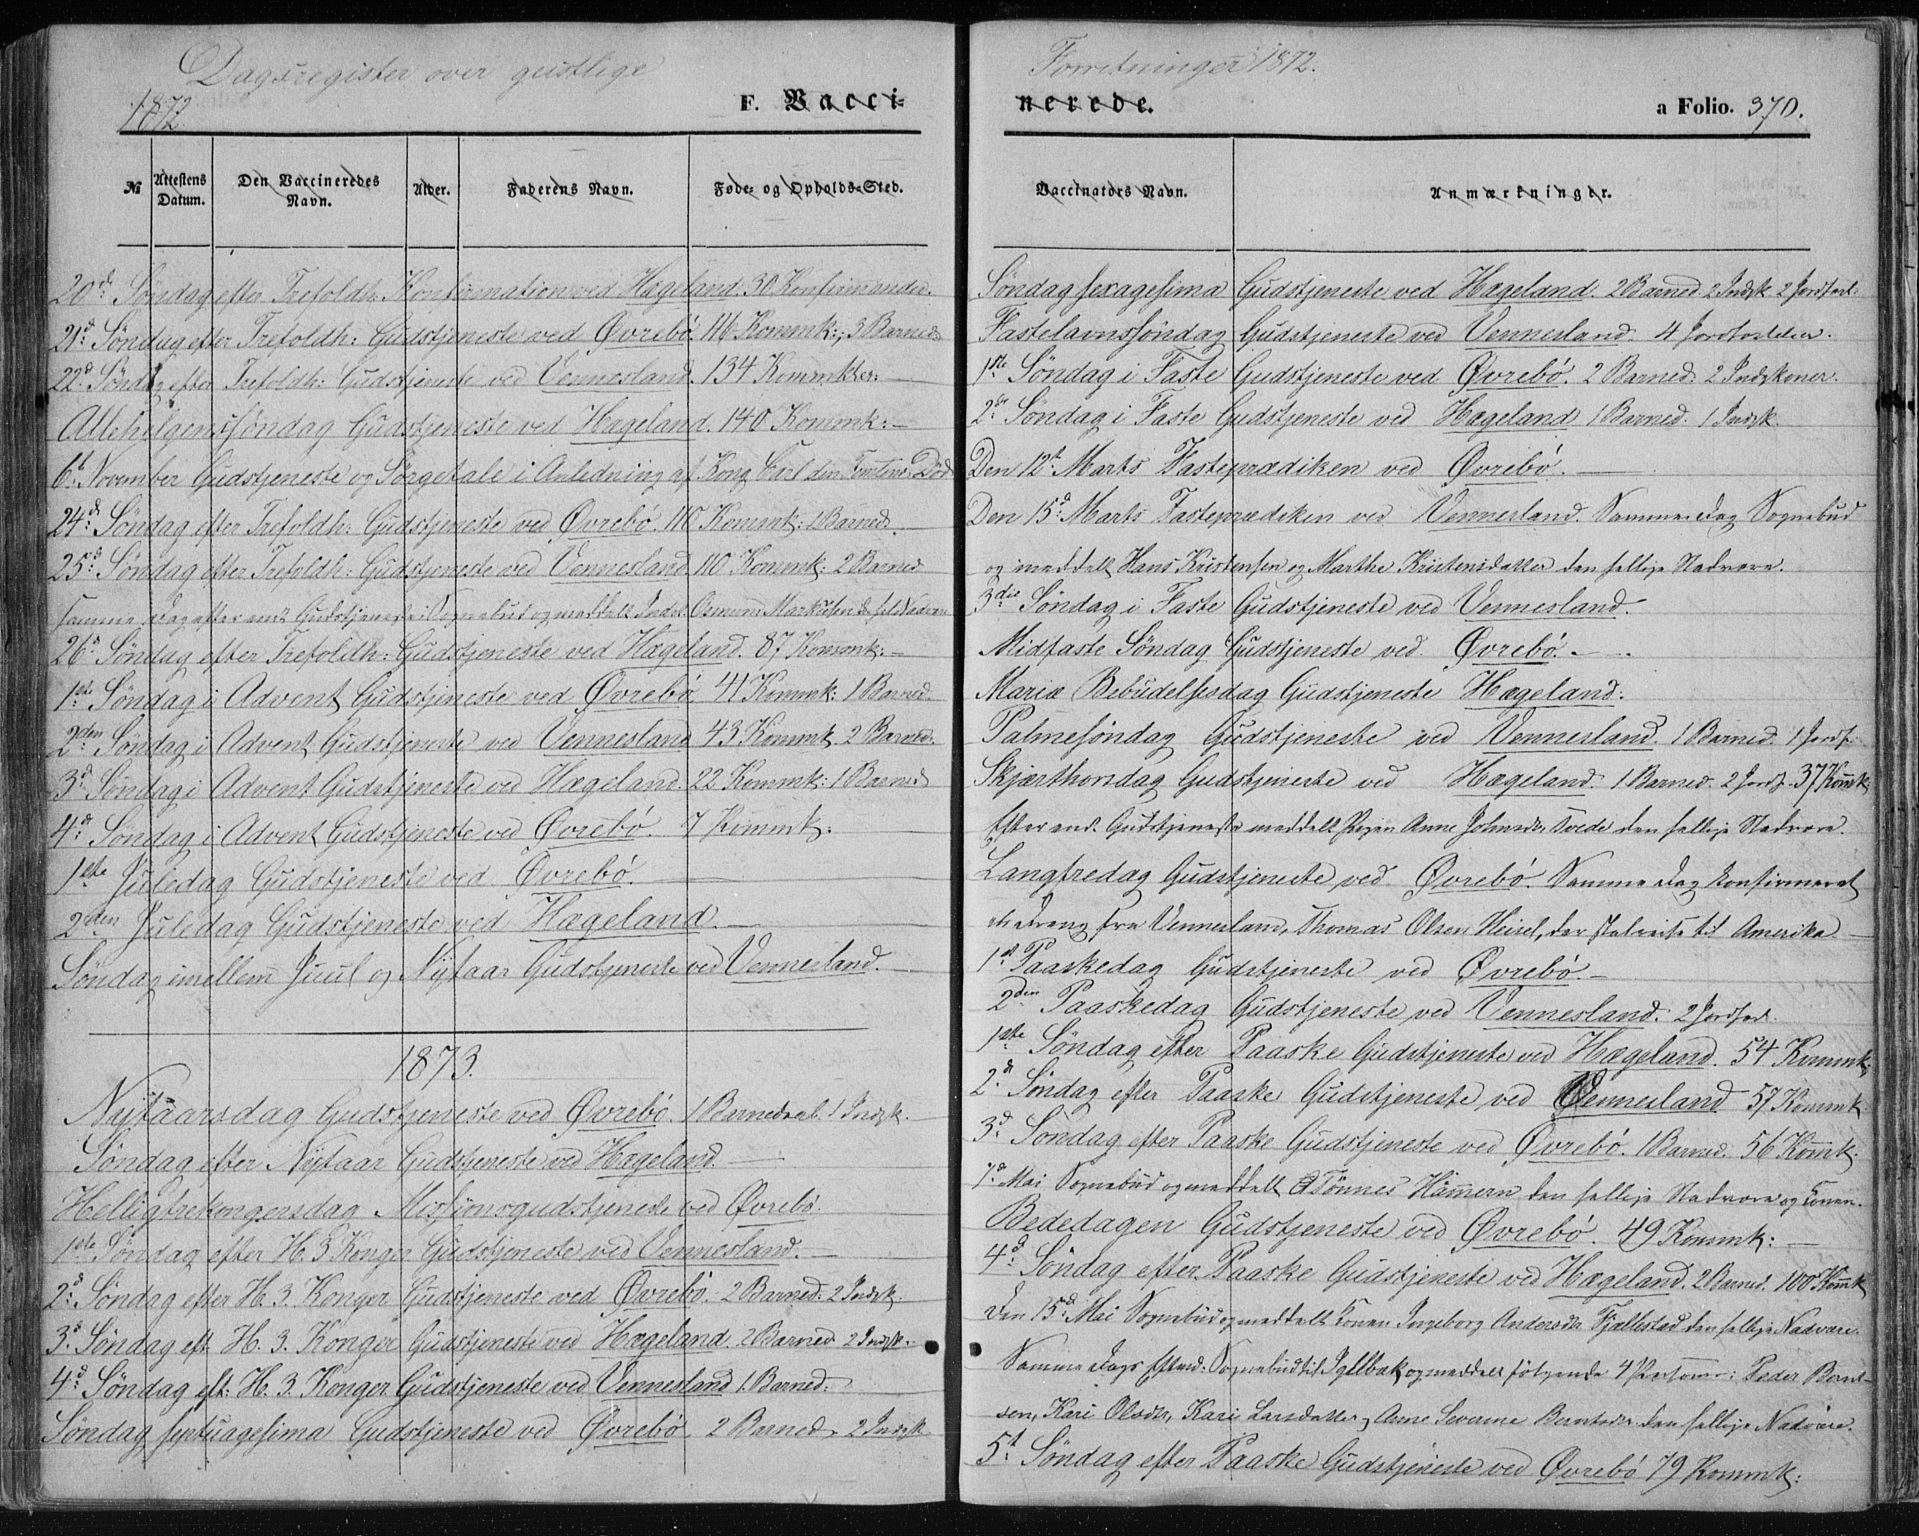 Dagsregister over geistlige
1872.
F. Vacci-
№
Attestens Datum.
Den Vaccineredes Navn.
Alder.
Faderens Navn.
Føde- og Opholds-Sted.
20d Søndag efter Trefoldh: Konfirmation ved Hægeland. 30 Konfirmander.
21d Søndag efter Trefoldh: Gudstjeneste ved Øvrebö. 116 Kommk: 3 Barned:
22d Søndag efter Trefoldh: Gudstjeneste ved Vennesland. 134 Kommkter:
Allehelgensføndag Gudstjeneste ved Hægeland. 140 Kommk:
6t November Gudstjeneste og Sørgetale i Anledning af Kong Carl den Femtendes Död
24d Søndag efter Trefoldh: Gudstjeneste ved Øvrebö. 110 Kommk: 1 Barned.
25d Søndag efter Trefoldh: Gudstjeneste ved Vennesland. 110 Kommk: 2 Barned
samme Dag efter Gudstjeneste i Sognebud og meddelt Osmund Markusen Nadvere
26d Søndag efter Trefoldh: Gudstjeneste ved Hægeland. 87 Kommk:
1ste Søndag i Advent Gudstjeneste ved Øvrebö 41 Kommk: 1 Barned.
2den Søndag i Advent Gudstjeneste ved Vennesland 43 Kommk. 2 Barned.
3d Søndag i Advent Gudstjeneste ved Hægeland. 22 Kommk: 1 Barned
4d Søndag i Advent Gudstjeneste ved Øvrebö. 7 Kommk:
1ste Juledag Gudstjeneste ved Øvrebö.
2den Juledag Gudstjeneste ved Hægeland.
Søndag imellem Juul og Nytaar Gudstjeneste ved Vennesland.
1873.
Nytaarsdag Gudstjeneste ved Øvrebö. 1 Barnedaab. 1 Indsk.
Søndag efter Nytaar Gudstjeneste ved Hægeland.
Helligtrekongersdag Missionsgudstjeneste ved Øvrebö.
1ste Søndag efter H. 3 Konger Gudstjeneste ved Vennesland.
2d Søndag efter H. 3. Konger Gudstjeneste ved Øvrebö. 2 Barned: 2 Indsk.
3d Søndag eft. H. 3. Konger Gudstjeneste ved Hægeland. 2 Barned 2 Indsk.
4d Søndag eft: H. 3. Konger Gudstjeneste ved Vennesland 1 Barned:
Søndag septuagesima Gudstjeneste ved Øvrebö 2 Barned. 2 Indsk
Forretninger 1872.
nerede.
a Folio. 370.
Vaccinators Navn.
Anmærkninger.
Søndag sexagesima Gudstjeneste ved Hægeland. 2 Barned. 2 Indsk 2 Jordfæst.
Fastelavnssøndag Gudstjeneste ved Vennesland. 4 Jordfæstelser.
1ste Søndag i Faste Gudstjeneste ved Øvrebö. 2 Barned. 2 Indskoner.
2d Søndag i Faste Gudstjeneste ved Hægeland 1 Barned. 1 Indsk.
Den 12t Marts Fasteprædiken ved Øvrebö.
Den 15d Marts Fasteprædiken ved Vennesland. Samme Dag Sognebud
og meddelt Hans Kristensen og Marthe Kristensdatter den hellige Nadvere.
3die Søndag i Faste Gudstjeneste ved Vennesland.
Midfaste Søndag Gudstjeneste ved Øvrebö.
Mariæ Bebudelsesdag Gudstjeneste Hægeland:
Palmesøndag Gudstjeneste ved Vennesland. 1 Barned. 1 Jordf.
Skjærthorsdag Gudstjeneste ved Hægeland. 1 Barned. 2 Jordf. 37 Kommk
Efter end. Gudstjeneste meddelt Pigen Anne Johnsdr. den hellige Nadvere.
Langfredag Gudstjeneste ved Øvrebö. Samme Dag konfirmeret
en Dreng fra Vennesland, Thomas Olsen Heisel, der skal reise til Amerika
1st Paaskedag Gudstjeneste ved Øvrebö.
2den Paaskedag Gudstjeneste ved Vennesland. 2 Jordfæst.
1ste Søndag efter Paaske Gudstjeneste ved Hægeland. 54 Kommk:
2d Søndag efter Paaske Gudstjeneste ved Vennesland 57 Kommk
3d Søndag efter Paaske Gudstjeneste ved Øvrebö. 1 Barned. 56 Kommk.
7d Mai Sognebud og meddelt Tönnes Hammern den hellige Nadvere og Konen.
Bededagen Gudstjeneste ved Øvrebö. 49 Kommk:
4d Søndag efter Paaske Gudstjeneste ved Hægeland. 2 Barned. 100 Kommk
Den 15d Mai Sognebud og meddelt Konen Ingeborg Andersdr Fjellestad den hellige Nadvere.
Samme Dags Efterm: Sognebud til og meddelt følgende 4 Personer: Peder Bernt-
sen, Kari Olsdr, Kari Larsdatter og Anne Severine Berntsdr den hellige Nadvere.
5t Søndag efter Paaske Gudstjeneste ved Øvrebö 79 Kommk: